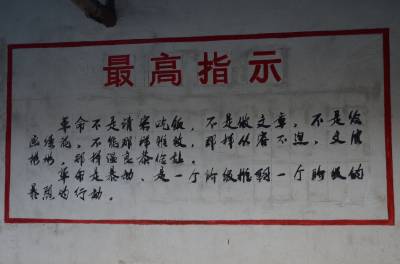 最高指示
革命不是请客吃饭，不是做文章，不是绘
画绣花，不能那样雅致，那样从容不迫，文质
彬彬，那样温良恭俭让。
革命是暴动，是一个阶级推翻一个阶级的
暴烈的行动。